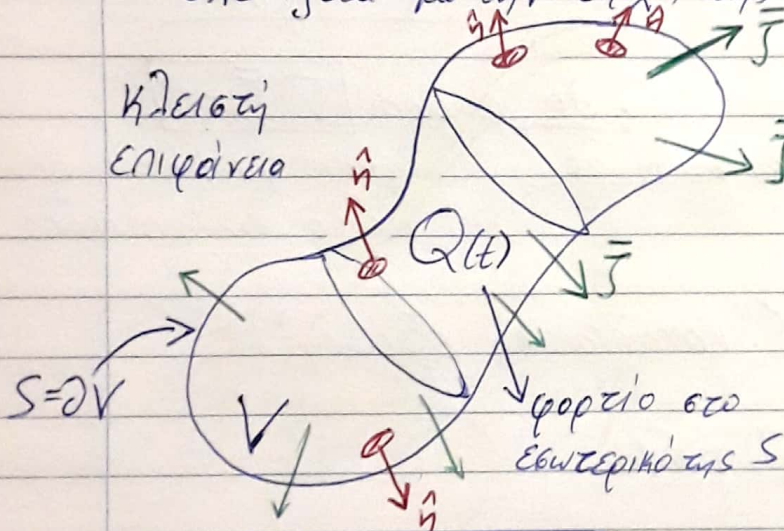 n̂
n̂
J̄
κλειστή
επιφάνεια
J̄
n̂
Q(t)
J̄
S=∂V
V
φορτίο στο
εσωτερικό της S
n̂